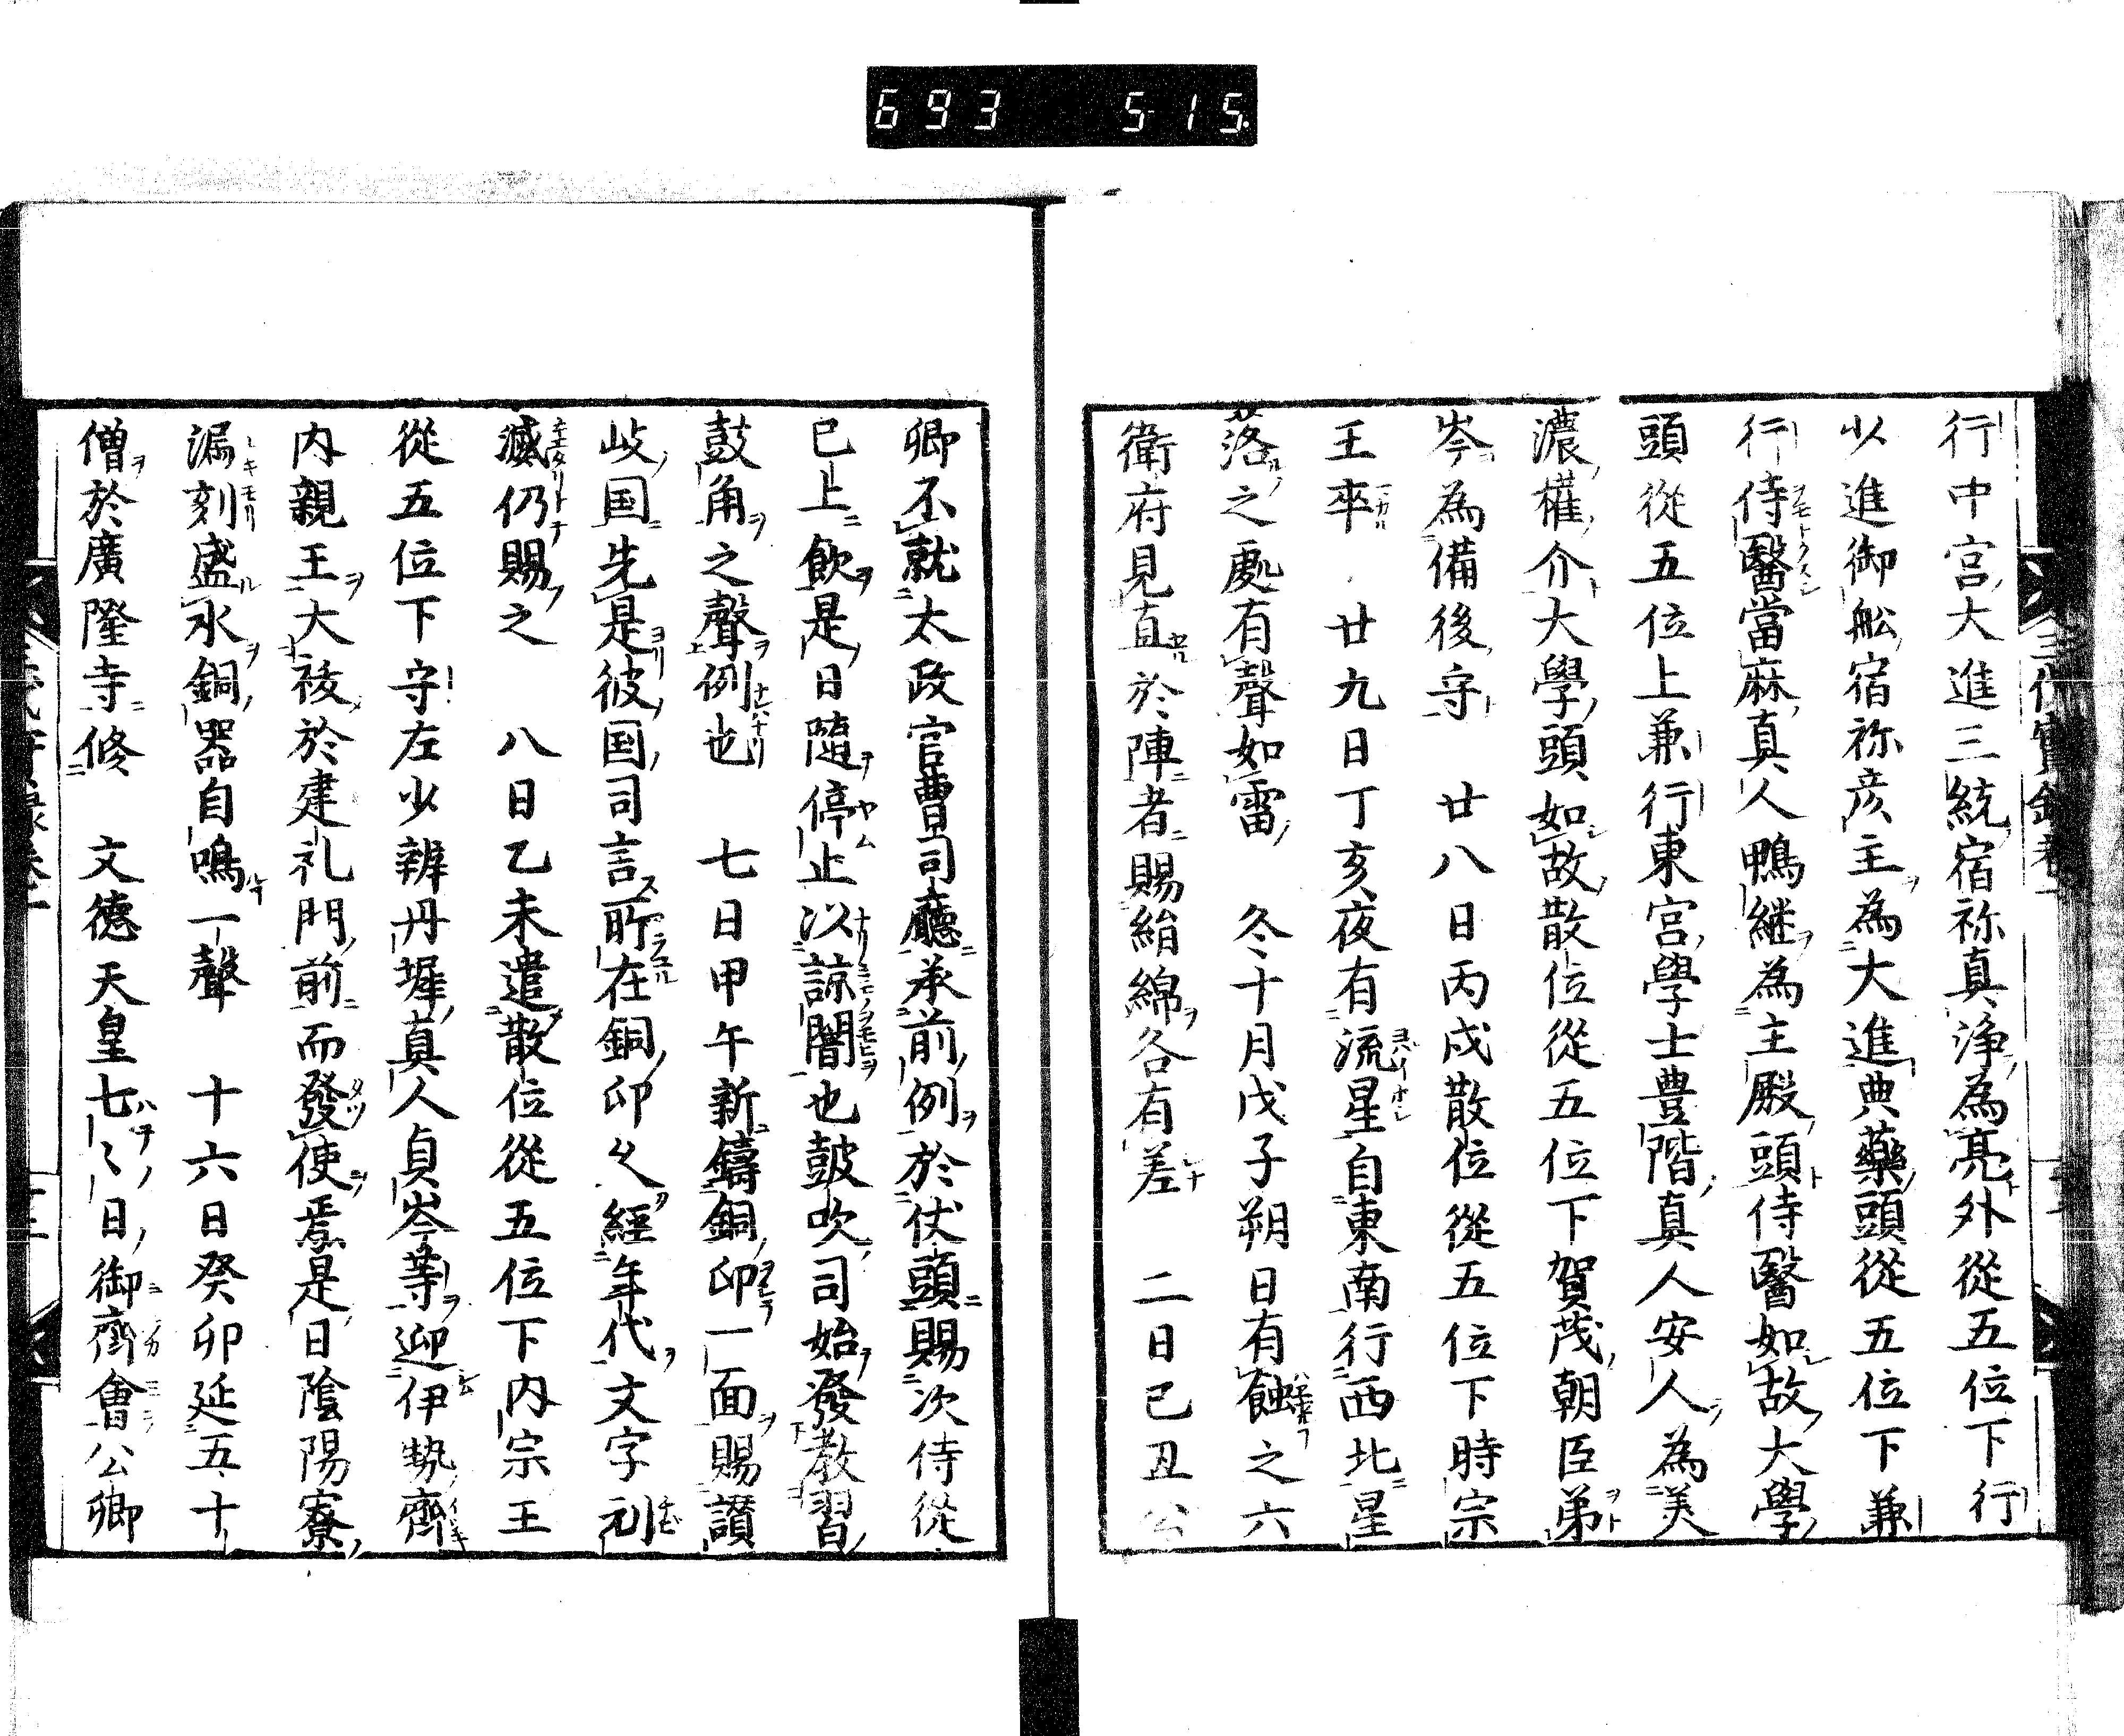 693 515.
行中宮大進三統宿祢真浄為亮外從五位下行
少進御舩宿祢彦主為大進典藥頭從五位下兼
行侍醫當麻真人鴨継為主殿頭侍醫如故大學
頭從五位上兼行東宮學士豊階真人安人為美
濃權介大學頭如故散位從五位下賀茂朝臣弟
岑為備後守 廿八日丙戌散位從五位下時宗
王卒 廿九日丁亥夜有流星自東南行西北星
落之處有聲如雷 冬十月戊子朔日有蝕之六
衛府見直於陣者賜絹綿各有差 二日己丑公
卿不就太政官曹司廳承前例於伏頭賜次侍從
已上飲是日隨停止以諒闇也皷吹司始發教習
鼓角之聲例也 七日甲午新鑄銅印一面賜讃
岐国先是彼国司言所在銅印久經年代文字刓
滅仍賜之 八日乙未遣散位從五位下内宗王
從五位下守左少辨丹墀真人貞岑等迎伊勢齊
内親王大祓於建礼門前而發使焉是日陰陽寮
漏刻盛水銅器自鳴一聲 十六日癸卯延五十
僧於廣隆寺修 文德天皇七〻日御齊會公卿